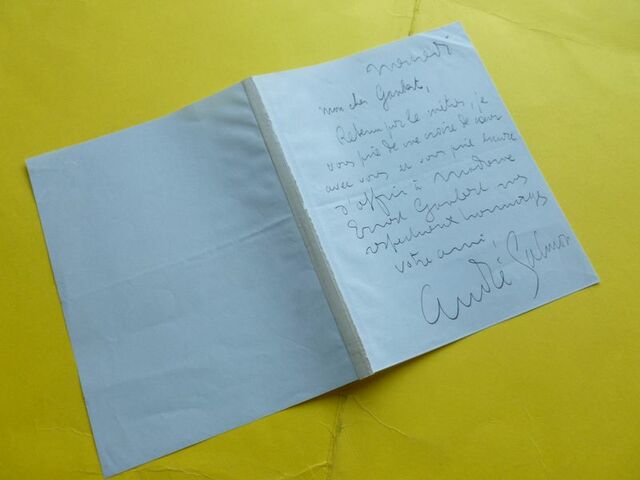 mercredi
mon cher Gaubert,
Retenu par le métier, je
vous prie de me croire de cœur
avec vous et vous prie encore
d'offrir à Madame
Ernest Gaubert mes
respectueux hommages
votre ami,
André Salmon